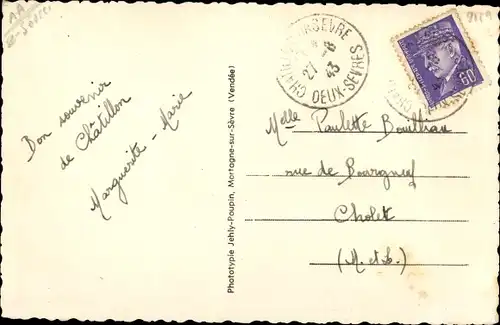 Bon souvenir
de Châtillon
Marguerite - Marie
Phototypie Jehly-Poupin, Mortagne-sur-Sèvre (Vendée)
27 -8
43
DEUX-SEVRES
60
Melle Paulette Bouilleau
rue de Bourgneuf
Cholet
(M. et L.)